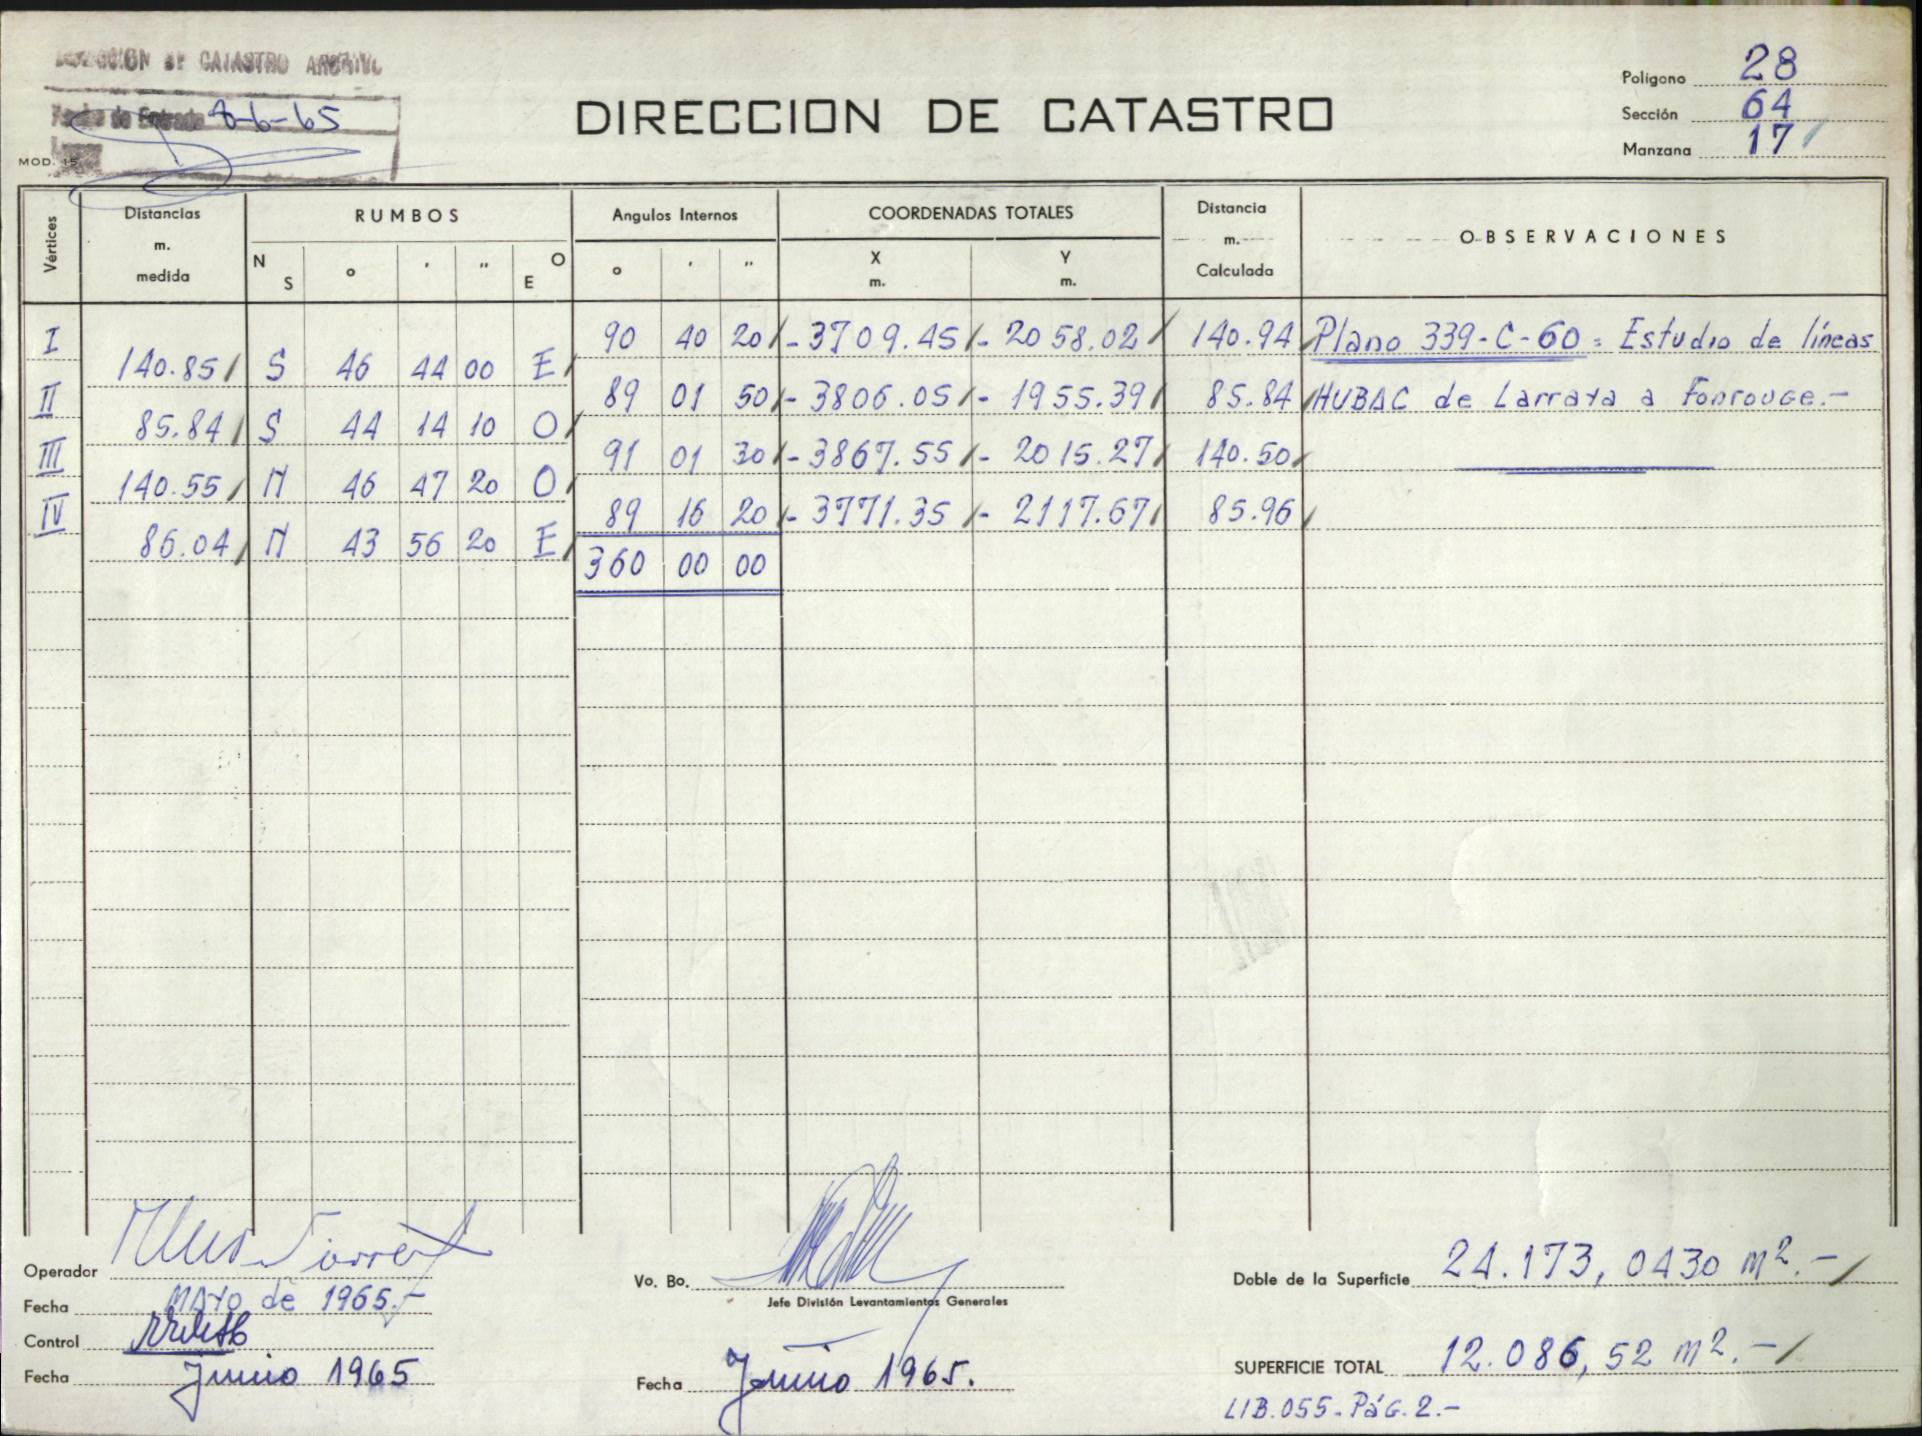 DIRECCION DE CATASTRO ARCHIVO
Fecha de Entrada 8-6-65
MOD. 15
DIRECCION DE CATASTRO
Polígono 28
Sección 64
Manzana 17
Vértices
Distancias m. medida
RUMBOS
N S ° ' " O E
Angulos Internos
° ' "
COORDENADAS TOTALES
X m. Y m.
Distancia m. Calculada
OBSERVACIONES
I 90 40 20 -3709.45 -2058.02 140.94 Plano 339-C-60= Estudio de líneas
140.85 S 46 44 00 E
II 89 01 50 -3806.05 -1955.39 85.84 HUBAC de Larraya a Fonrouge.-
85.84 S 44 14 10 O
III 91 01 30 -3867.55 -2015.27 140.50
140.55 N 46 47 20 O
IV 89 16 20 -3771.35 -2117.67 85.96
86.04 N 43 56 20 E
360 00 00
Operador
Fecha MAYO de 1965.-
Control
Fecha Junio 1965
Vo. Bo.
Jefe División Levantamientos Generales
Fecha Junio 1965.
Doble de la Superficie 24.173,0430 m2.-
SUPERFICIE TOTAL 12.086,52 m2.-
LIB.055-Pág.2.-